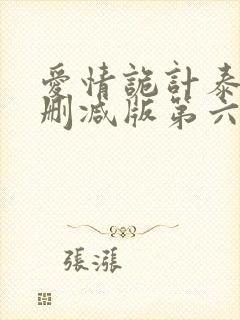 愛情詭計泰
刪減版第六
張漲